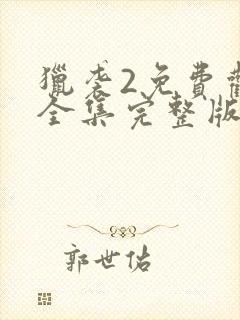 獵袭2免費
全集完整版
郭世佑